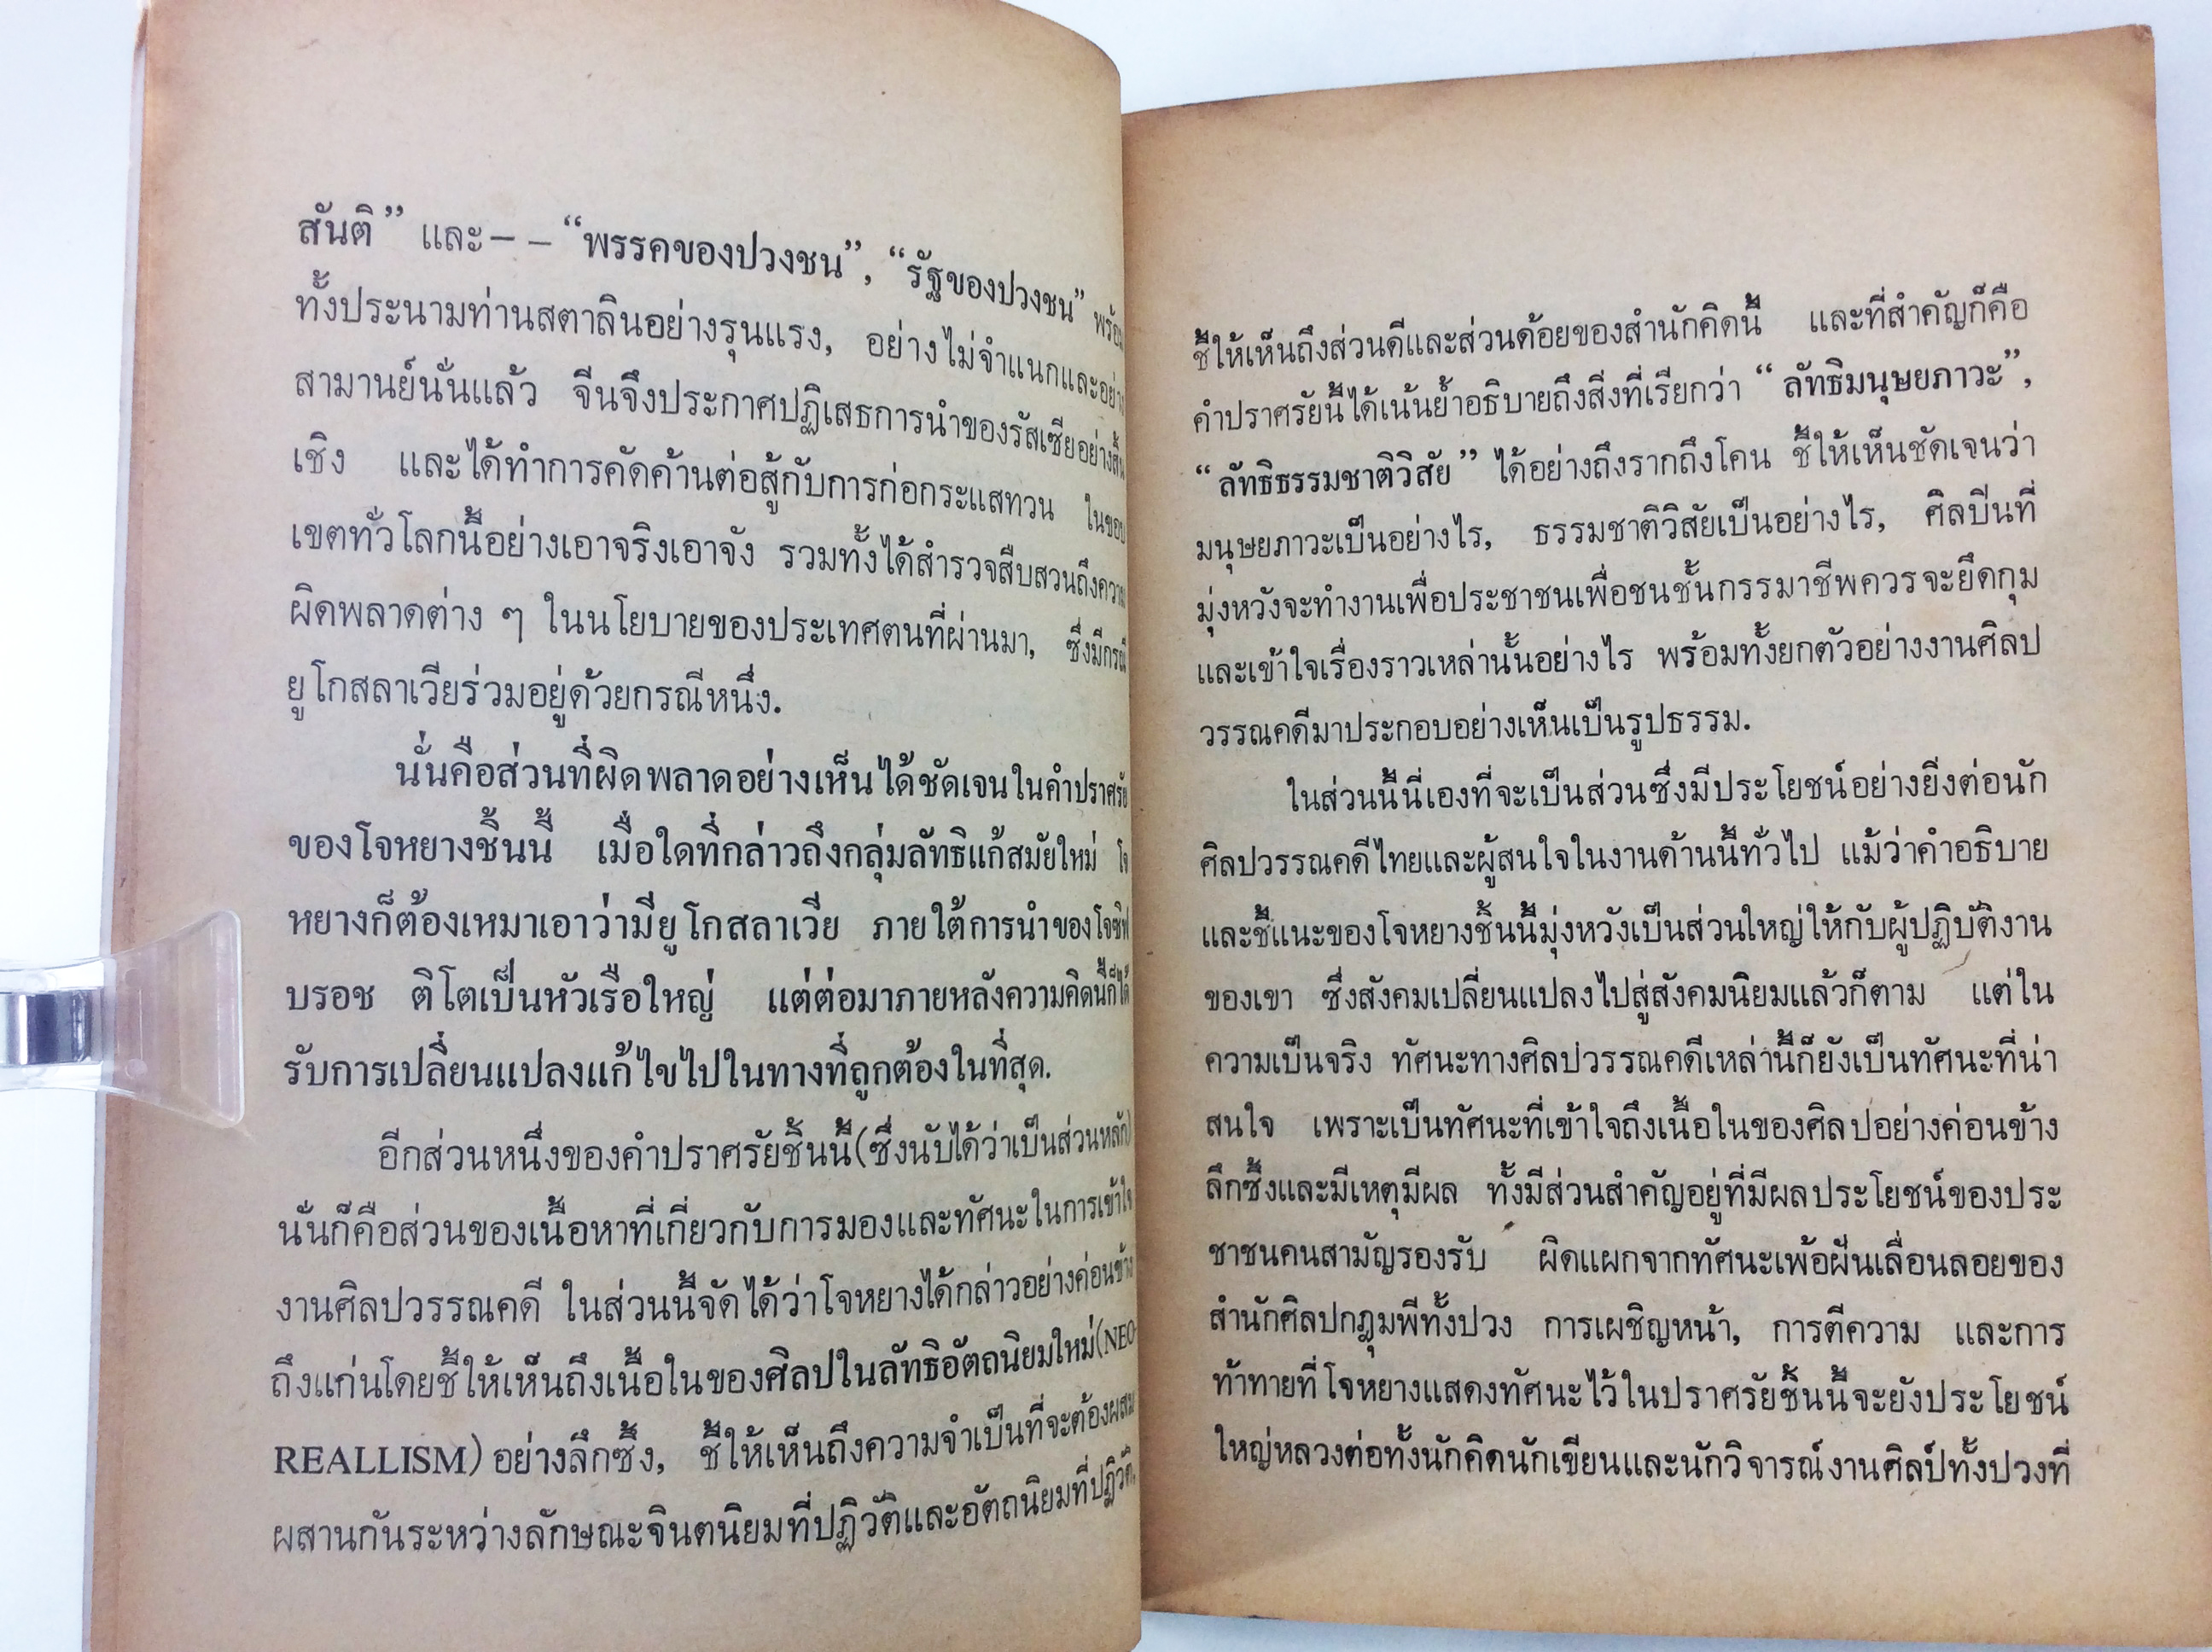 สันติ” และ – – “พรรคของปวงชน”, “รัฐของปวงชน” พร้อม
ทั้งประนามท่านสตาลินอย่างรุนแรง, อย่างไม่จำแนกและอย่าง
สามานย์นั่นแล้ว จีนจึงประกาศปฏิเสธการนำของรัสเซียอย่างสิ้น
เชิง และได้ทำการคัดค้านต่อสู้กับการก่อกระแสทวน ในขอบ
เขตทั่วโลกนี้อย่างเอาจริงเอาจัง รวมทั้งได้สำรวจสืบสวนถึงความ
ผิดพลาดต่าง ๆ ในนโยบายของประเทศตนที่ผ่านมา, ซึ่งมีกรณี
ยูโกสลาเวียร่วมอยู่ด้วยกรณีหนึ่ง.
นั่นคือส่วนที่ผิดพลาดอย่างเห็นได้ชัดเจนในคำปราศรัย
ของโจหยางชิ้นนี้ เมื่อใดที่กล่าวถึงกลุ่มลัทธิแก้สมัยใหม่ โจ
หยางก็ต้องเหมาเอาว่ามียูโกสลาเวีย ภายใต้การนำของโจซิฟ
บรอช ติโตเป็นหัวเรือใหญ่ แต่ต่อมาภายหลังความคิดนี้ก็ได้
รับการเปลี่ยนแปลงแก้ไขไปในทางที่ถูกต้องในที่สุด.
อีกส่วนหนึ่งของคำปราศรัยชิ้นนี้(ซึ่งนับได้ว่าเป็นส่วนหลัก)
นั่นก็คือส่วนของเนื้อหาที่เกี่ยวกับการมองและทัศนะในการเข้าใจ
งานศิลปวรรณคดี ในส่วนนี้จัดได้ว่าโจหยางได้กล่าวอย่างค่อนข้าง
ถึงแก่นโดยชี้ให้เห็นถึงเนื้อในของศิลปในลัทธิอัตถนิยมใหม่(NEO-
REALLISM) อย่างลึกซึ้ง, ชี้ให้เห็นถึงความจำเป็นที่จะต้องผสม
ผสานกันระหว่างลักษณะจินตนิยมที่ปฏิวัติและอัตถนิยมที่ปฏิวัติ,
ชี้ให้เห็นถึงส่วนดีและส่วนด้อยของสำนักคิดนี้ และที่สำคัญก็คือ
คำปราศรัยนี้ได้เน้นย้ำอธิบายถึงสิ่งที่เรียกว่า “ลัทธิมนุษยภาวะ”,
“ลัทธิธรรมชาติวิสัย” ได้อย่างถึงรากถึงโคน ชี้ให้เห็นชัดเจนว่า
มนุษยภาวะเป็นอย่างไร, ธรรมชาติวิสัยเป็นอย่างไร, ศิลปินที่
มุ่งหวังจะทำงานเพื่อประชาชนเพื่อชนชั้นกรรมาชีพควรจะยึดกุม
และเข้าใจเรื่องราวเหล่านั้นอย่างไร พร้อมทั้งยกตัวอย่างงานศิลป
วรรณคดีมาประกอบอย่างเห็นเป็นรูปธรรม.
ในส่วนนี้นี่เองที่จะเป็นส่วนซึ่งมีประโยชน์อย่างยิ่งต่อนัก
ศิลปวรรณคดีไทยและผู้สนใจในงานด้านนี้ทั่วไป แม้ว่าคำอธิบาย
และชี้แนะของโจหยางชิ้นนี้มุ่งหวังเป็นส่วนใหญ่ให้กับผู้ปฏิบัติงาน
ของเขา ซึ่งสังคมเปลี่ยนแปลงไปสู่สังคมนิยมแล้วก็ตาม แต่ใน
ความเป็นจริง ทัศนะทางศิลปวรรณคดีเหล่านี้ก็ยังเป็นทัศนะที่น่า
สนใจ เพราะเป็นทัศนะที่เข้าใจถึงเนื้อในของศิลปอย่างค่อนข้าง
ลึกซึ้งและมีเหตุมีผล ทั้งมีส่วนสำคัญอยู่ที่มีผลประโยชน์ของประ
ชาชนคนสามัญรองรับ ผิดแผกจากทัศนะเพ้อฝันเลื่อนลอยของ
สำนักศิลปกฎุมพีทั้งปวง การเผชิญหน้า, การตีความ และการ
ท้าทายที่โจหยางแสดงทัศนะไว้ในปราศรัยชิ้นนี้จะยังประโยชน์
ใหญ่หลวงต่อทั้งนักคิดนักเขียนและนักวิจารณ์งานศิลป์ทั้งปวงที่